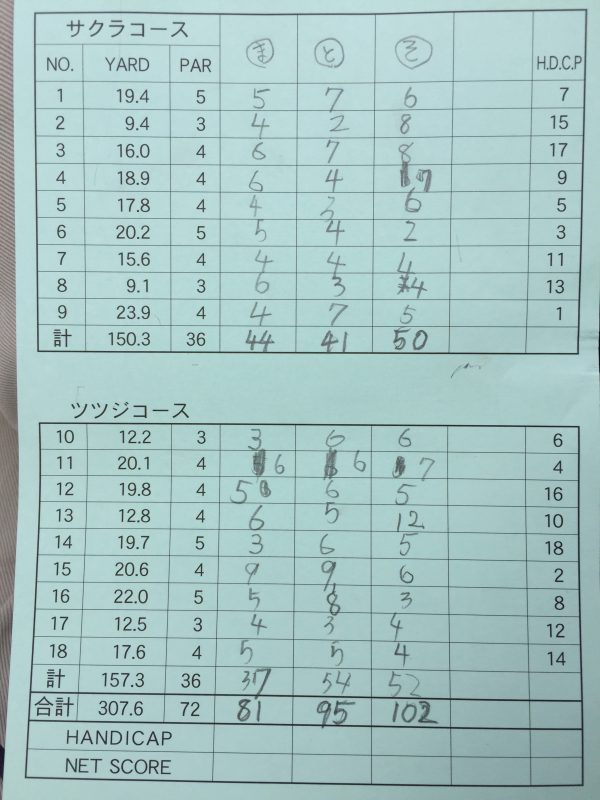 サクラコース ま と そ
NO. YARD PAR H.D.C.P
1 19.4 5 5 7 6 7
2 9.4 3 4 2 8 15
3 16.0 4 6 7 8 17
4 18.9 4 6 4 7 9
5 17.8 4 4 3 6 5
6 20.2 5 5 4 2 3
7 15.6 4 4 4 4 11
8 9.1 3 6 3 4 13
9 23.9 4 4 7 5 1
計 150.3 36 44 41 50
ツツジコース
10 12.2 3 3 6 6 6
11 20.1 4 6 6 7 4
12 19.8 4 5 6 5 16
13 12.8 4 6 5 12 10
14 19.7 5 3 6 5 18
15 20.6 4 9 6 2
16 22.0 5 5 8 3 8
17 12.5 3 4 3 4 12
18 17.6 4 5 5 4 14
計 157.3 36 37 54 52
合計 307.6 72 81 95 102
HANDICAP
NET SCORE